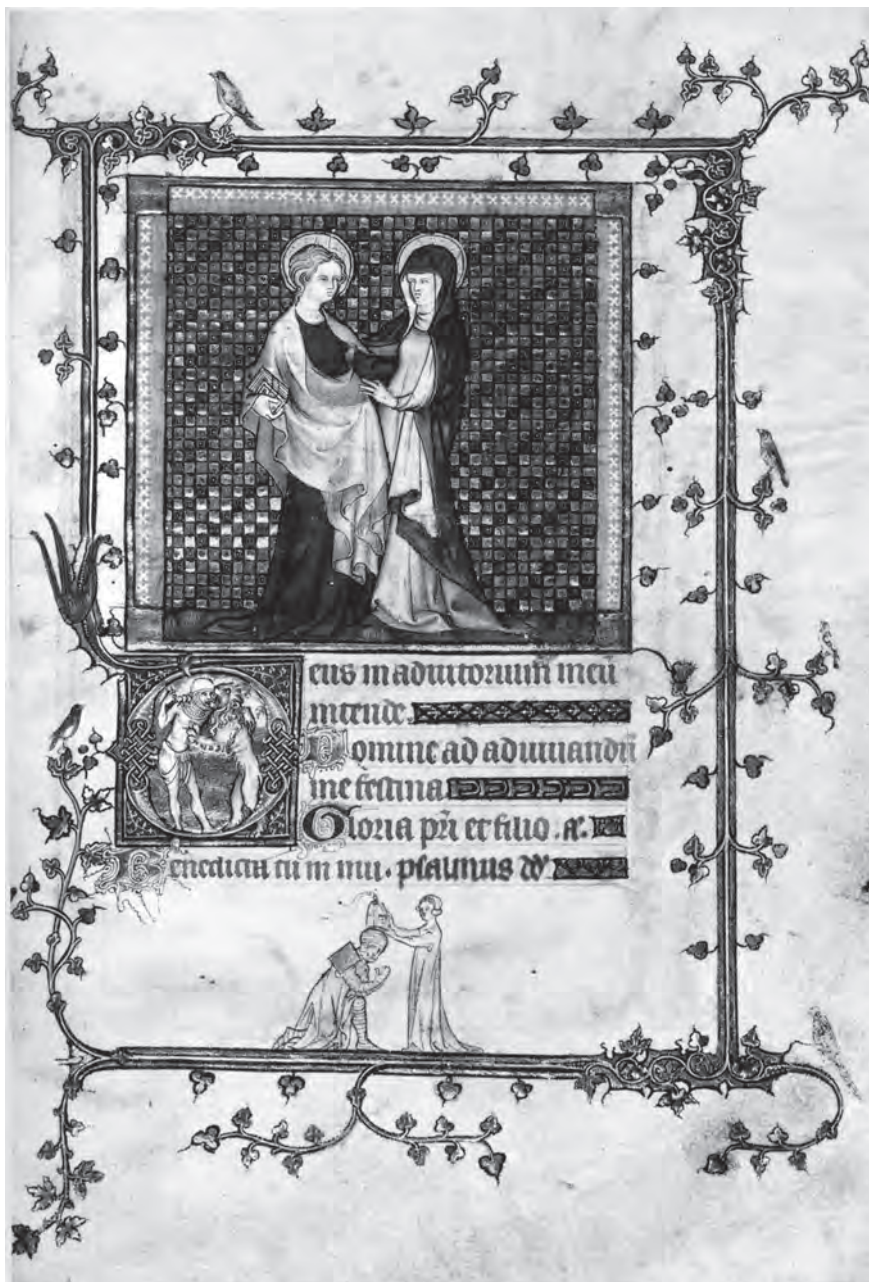 Deus in adiutorium meū
intende.
Domine ad adiuuandū
me festina
Gloria pr̄i et filio. &.
Benedicta tu in mui. psalmus